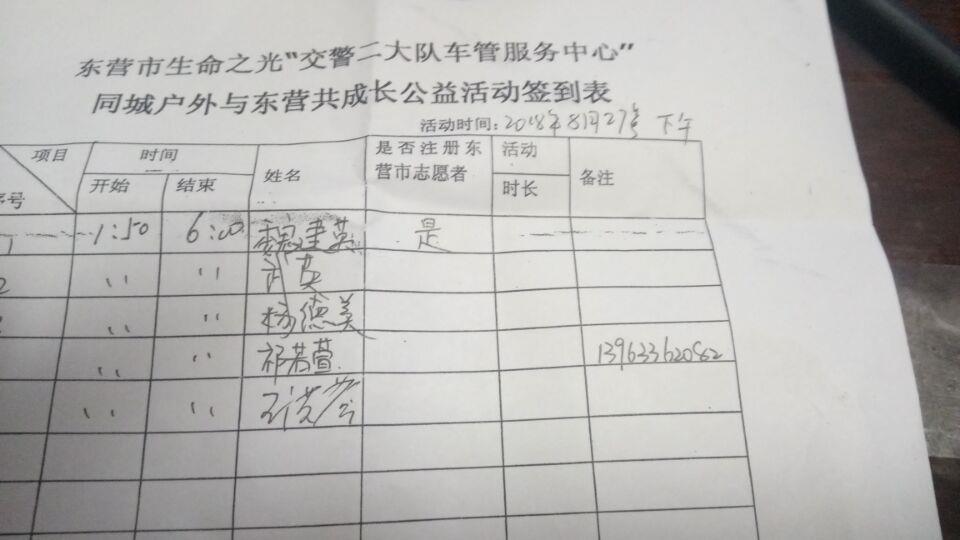 东营市生命之光“交警二大队车管服务中心”
同城户外与东营共成长公益活动签到表
活动时间：2018年8月27号 下午
项目 时间 姓名 是否注册东营市志愿者 活动时长 备注
序号 开始 结束
1 1:50 6:00 魏建英 是
2 〃 〃 许英
〃 〃 杨德美
〃 〃 祁若萱 13963362082
〃 〃